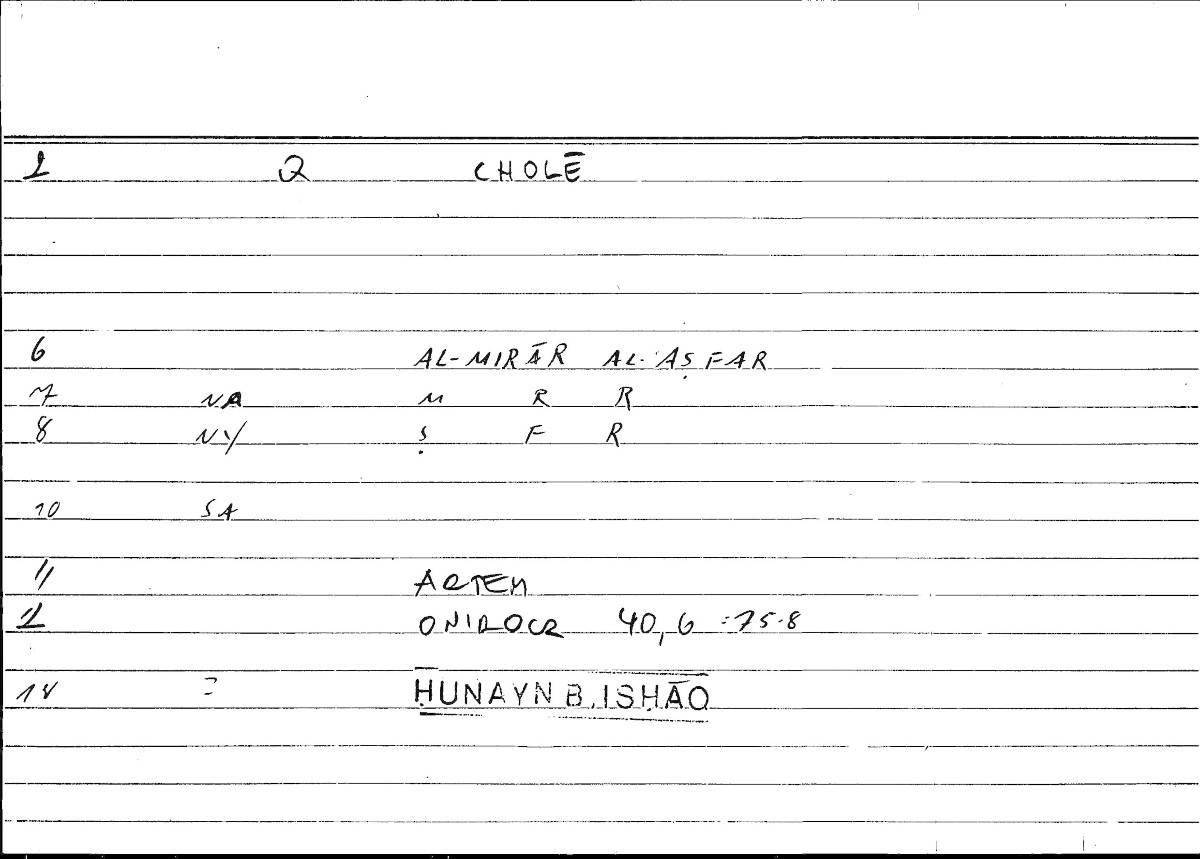 1 Q CHOLĒ
6 AL-MIRĀR AL-'AṢFAR
7 NA M R R
8 NY Ṣ F R
10 SA
11 ARTEM
12 ONIROCR 40,6 :75.8
14 = ḤUNAYN B. ISḤĀQ